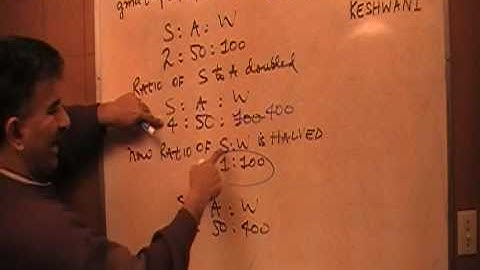 gmat
KESHWANI
S : A : W
2 : 50 : 100
RATIO OF S to A doubled
S : A : W
4 : 50 : 100 400
now RATIO OF S:W is HALVED
1 : 100
S : A : W
50 : 400